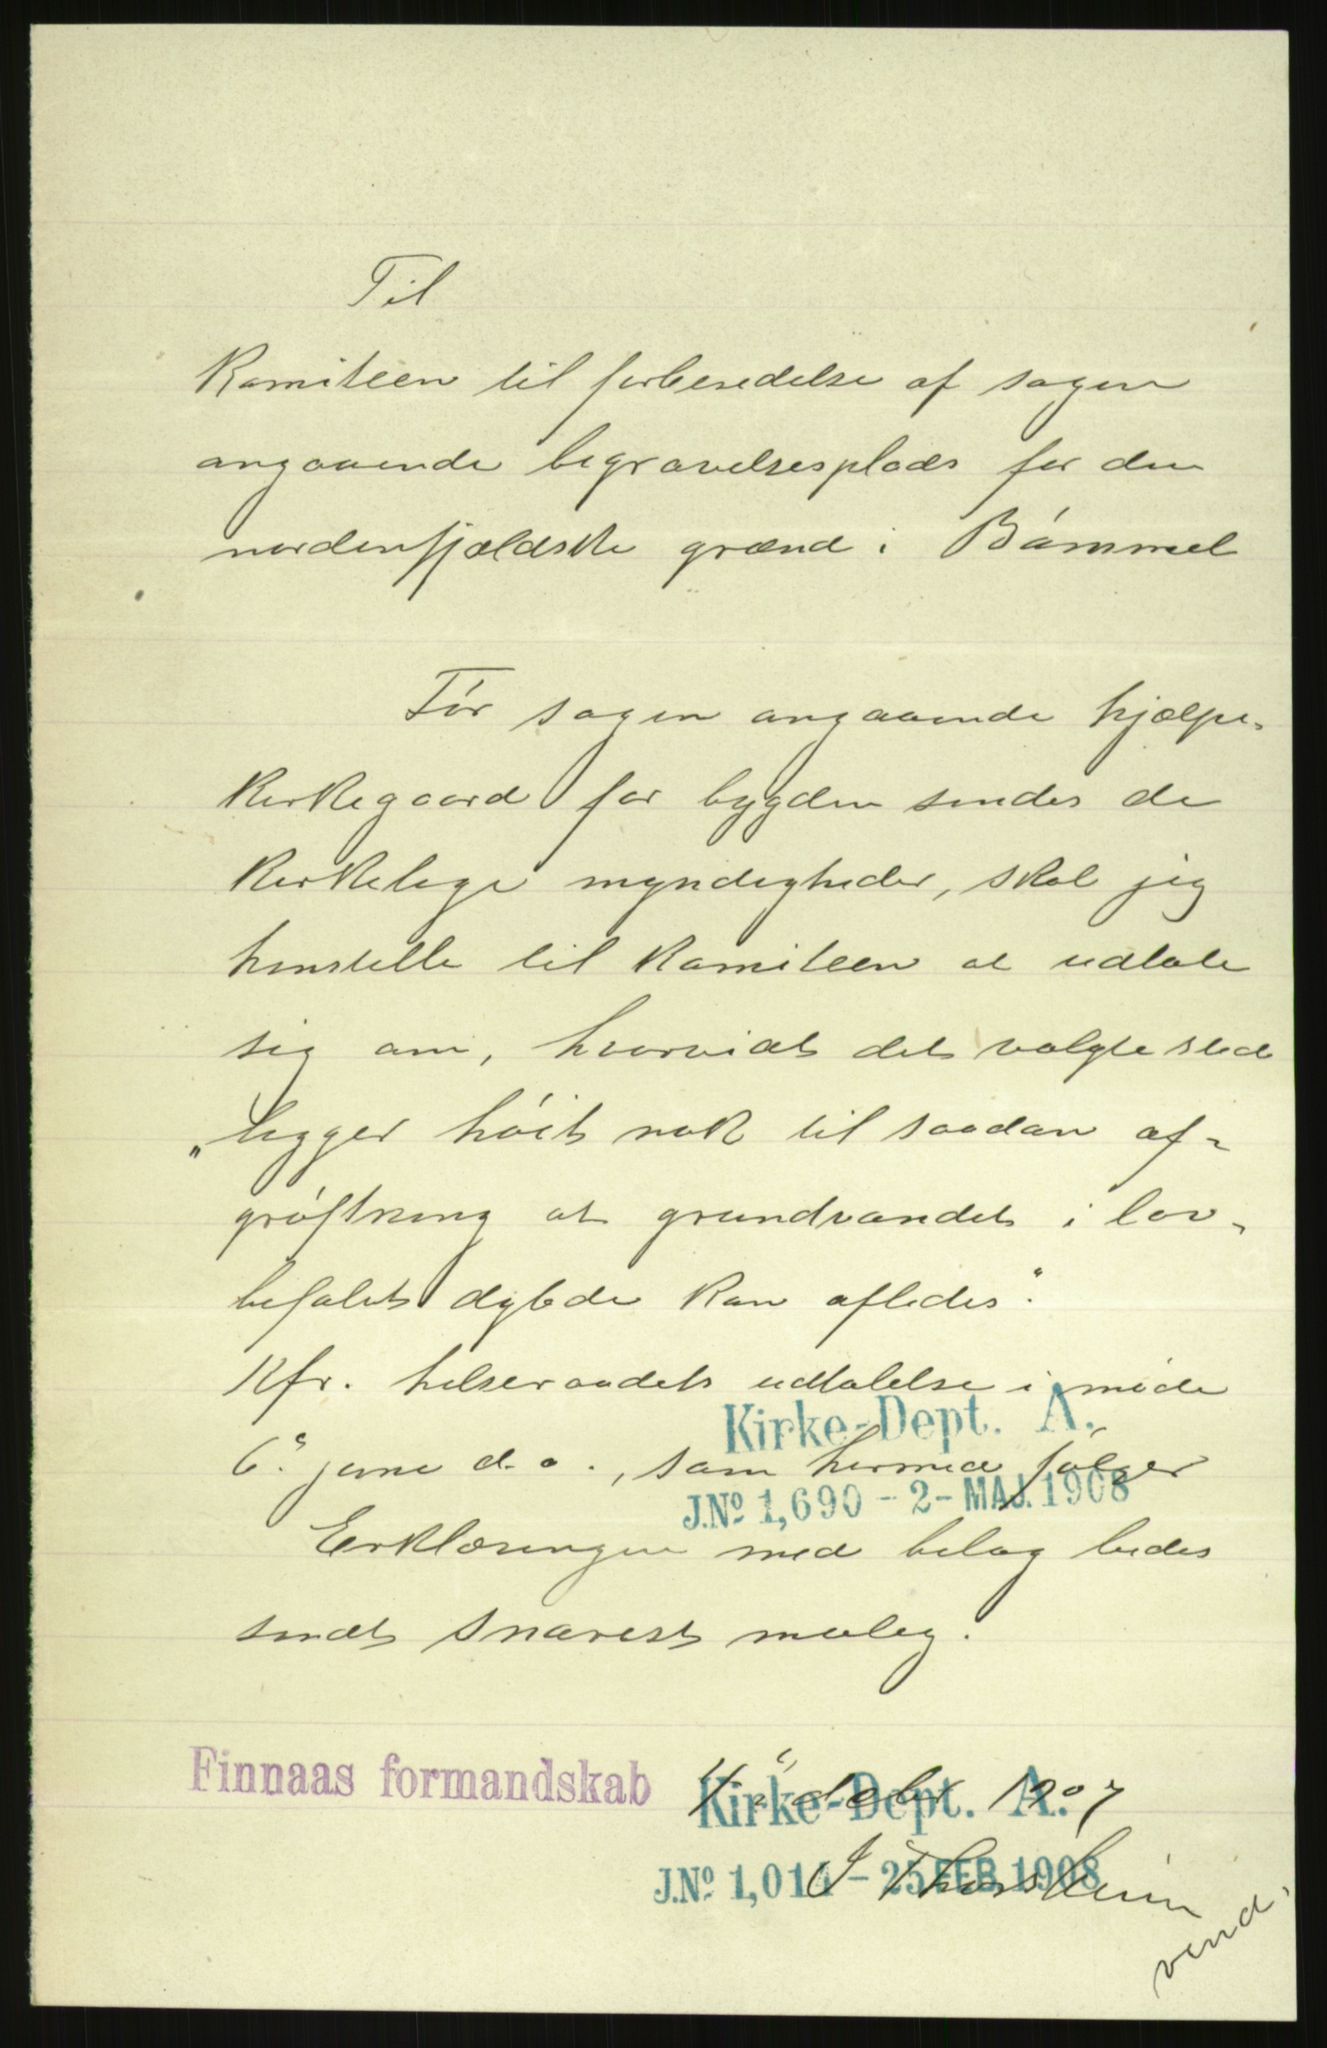 Til
Komiteen til forberedelse af sagen
angaaende begravelsesplads for den
nordenfjeldske grænd i Bømmel
Før sagen angaaende hjælpe-
kirkegaard for bygden sendes de
kirkelige myndigheder, skal jeg
henstille til komiteen at udtale
sig om, hvorvidt det valgte sted
"ligger høit nok til saadan af-
grøftning at grundvandet i lov-
befalet dybde kan afledes".
Kfr. helseraadets udtalelse i møde
6. juni d. a., som hermed følger
Kirke-Dept. A.
J.Nº 1,690 - 2 - MAJ. 1908
Erklæringen med bilag bedes
sendt snarest mulig.
Finnaas formandskab
decbr 1907
Kirke-Dept. A.
J.Nº 1,014 - 25 FEB. 1908
J Thorsheim
vend.